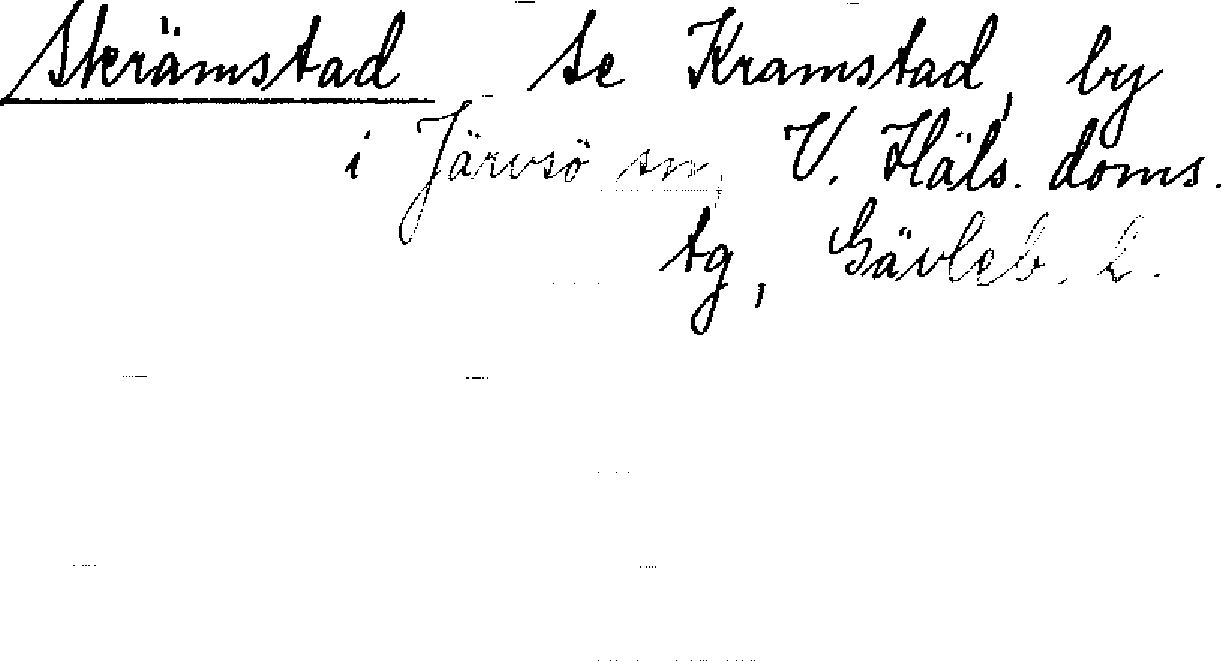 Skrämstad se Kramstad, by
i Järvsö sn, V. Häls. doms.
tg, Gävleb. L.